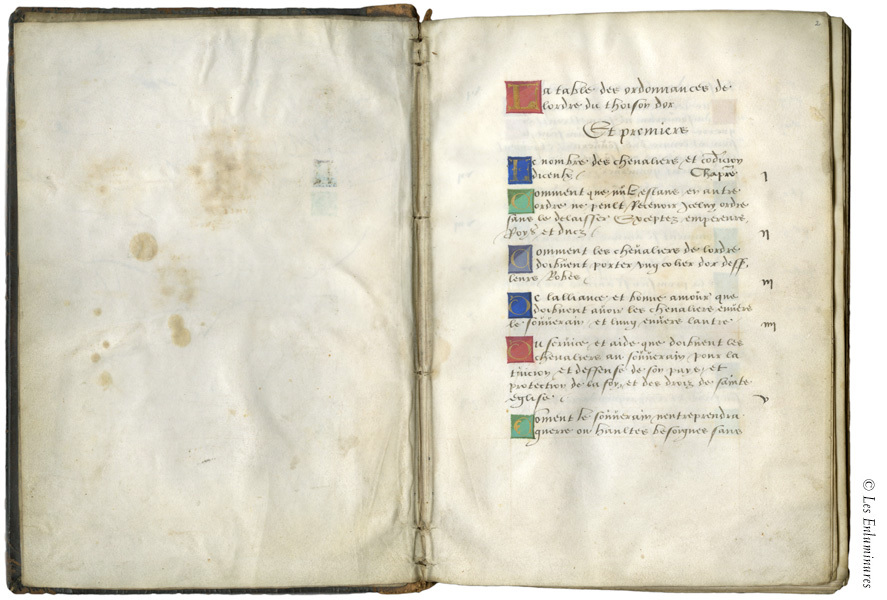 2
La table des ordonnances de
lordre du thoison dor
Et premiers
Le nombre des chevaliers, et condicion
dicculx Chapre I
Comment que nulz estans en autre
ordre ne peult recevoir icelluy ordre
sans le delaisser Exceptez empereurs,
Roys et ducz II
Comment les chevaliers de lordre
doibvent porter ung colier dor dess9
leurs Robes III
De lalliance et bonne amour que
doibvent avoir les chevaliers envers
le souverain et lung envers lautre IIII
Du service et aide que doibvent les
chevaliers au souverain pour la
tuicion et deffense de son pays, et
protection de la foy, et des droiz de sainte
eglise V
Coment le souverain nentreprendra
guerre ou haultes besoignes sans
© Les Enluminures